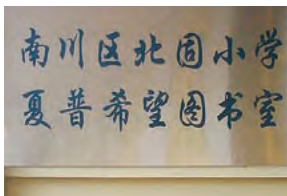 南川区北固小学
夏普希望图书室